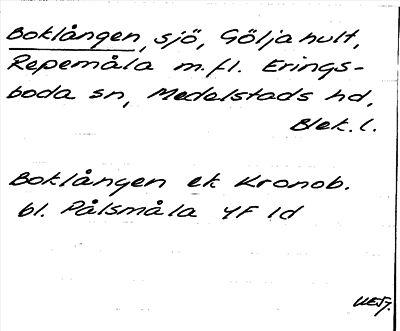 Boklången, sjö, Göljahult,
Repemåla m.fl. Erings-
boda sn, Medelstads hd,
Blek. l.
Boklången ek Kronob.
bl. Pålsmåla 4F 1d